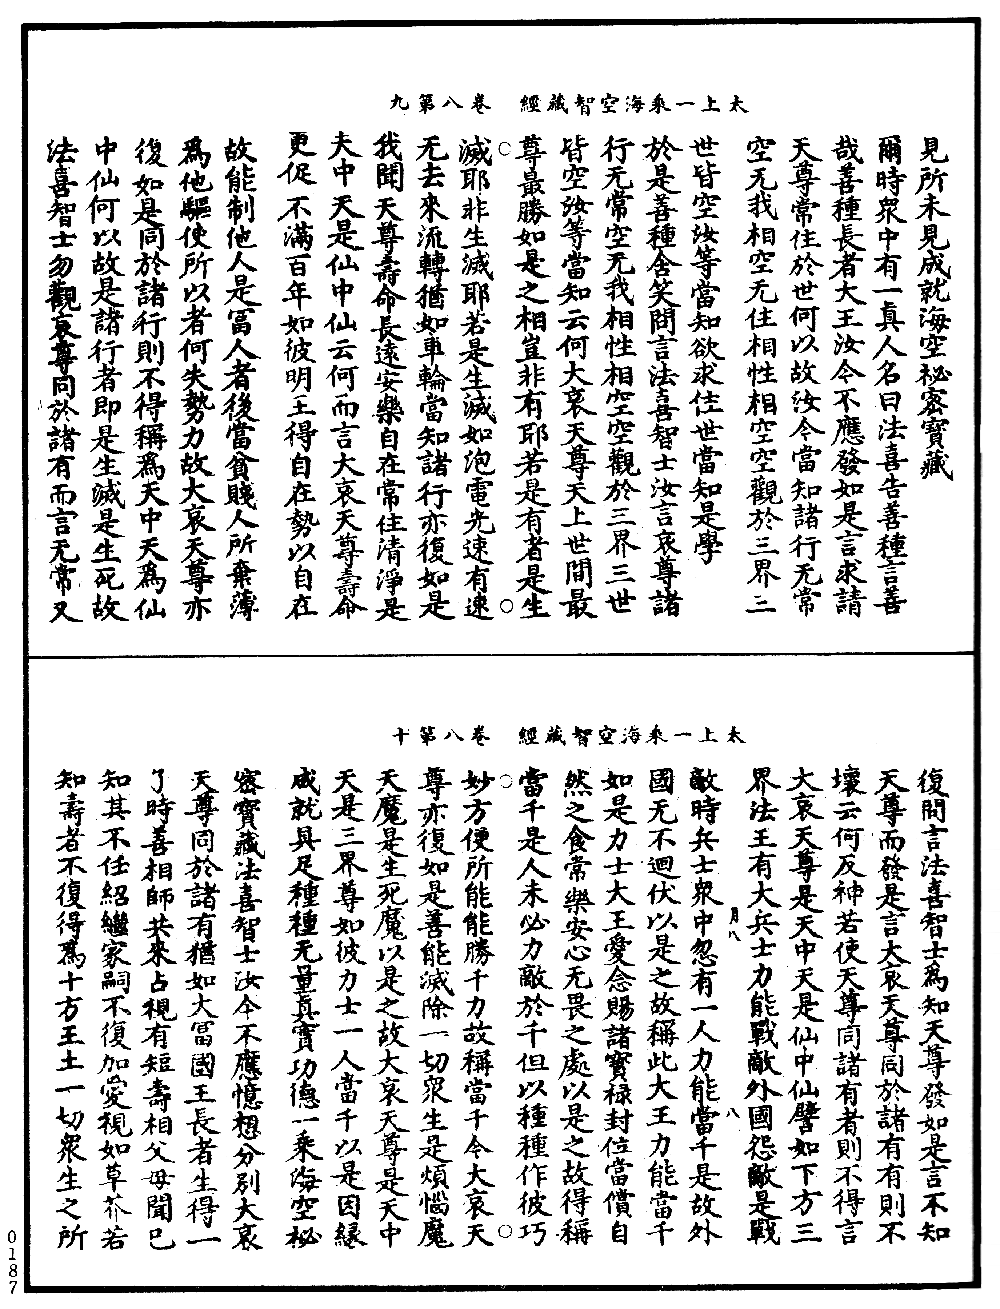 太上一乘海空智藏經　卷八第九
見所未見成就海空祕密寶藏
爾時衆中有一真人名曰法喜告善種言善
哉善種長者大王汝今不應發如是言求請
天尊常住於世何以故汝今當知諸行无常
空无我相空无住相性相空空觀於三界三
世皆空汝等當知欲求住世當知是學
於是善種含笑問言法喜智士汝言哀尊諸
行无常空无我相性相空空觀於三界三世
皆空汝等當知云何大哀天尊天上世間最
尊最勝如是之相豈非有耶若是有者是生
滅耶非生滅耶若是生滅如泡電光速有速
无去來流轉猶如車輪當知諸行亦復如是
我聞天尊壽命長遠安樂自在常住清淨是
天中天是仙中仙云何而言大哀天尊壽命
更促不滿百年如彼明王得自在勢以自在
故能制他人是冨人者後當貧賤人所棄薄
爲他驅使所以者何失勢力故大哀天尊亦
復如是同於諸行則不得稱爲天中天爲仙
中仙何以故是諸行者即是生滅是生死故
法喜智士勿觀哀尊同於諸有而言无常又
太上一乘海空智藏經　卷八第十
復問言法喜智士爲知天尊發如是言不知
天尊而發是言大哀天尊同於諸有有則不
壞云何反神若使天尊同諸有者則不得言
大哀天尊是天中天是仙中仙譬如下方三
界法王有大兵士力能戰敵外國怨敵是戰
敵時兵士衆中忽有一人力能當千是故外
國无不迴伏以是之故稱此大王力能當千
如是力士大王愛念賜諸寶祿封位當償自
然之食常樂安心无畏之處以是之故得稱
當千是人未必力敵於千但以種種作彼巧
妙方便所能能勝千力故稱當千今大哀天
尊亦復如是善能滅除一切衆生是煩惱魔
天魔是生死魔以是之故大哀天尊是天中
天是三界尊如彼力士一人當千以是因緣
成就具足種種无量真實功德一乘海空祕
密寶藏法喜智士汝今不應憶想分別大哀
天尊同於諸有猶如大冨國王長者生得一
了時善相師共來占視有短壽相父母聞已
知其不任紹繼家嗣不復加愛視如草芥若
知壽者不復得爲十方王土一切衆生之所
0187